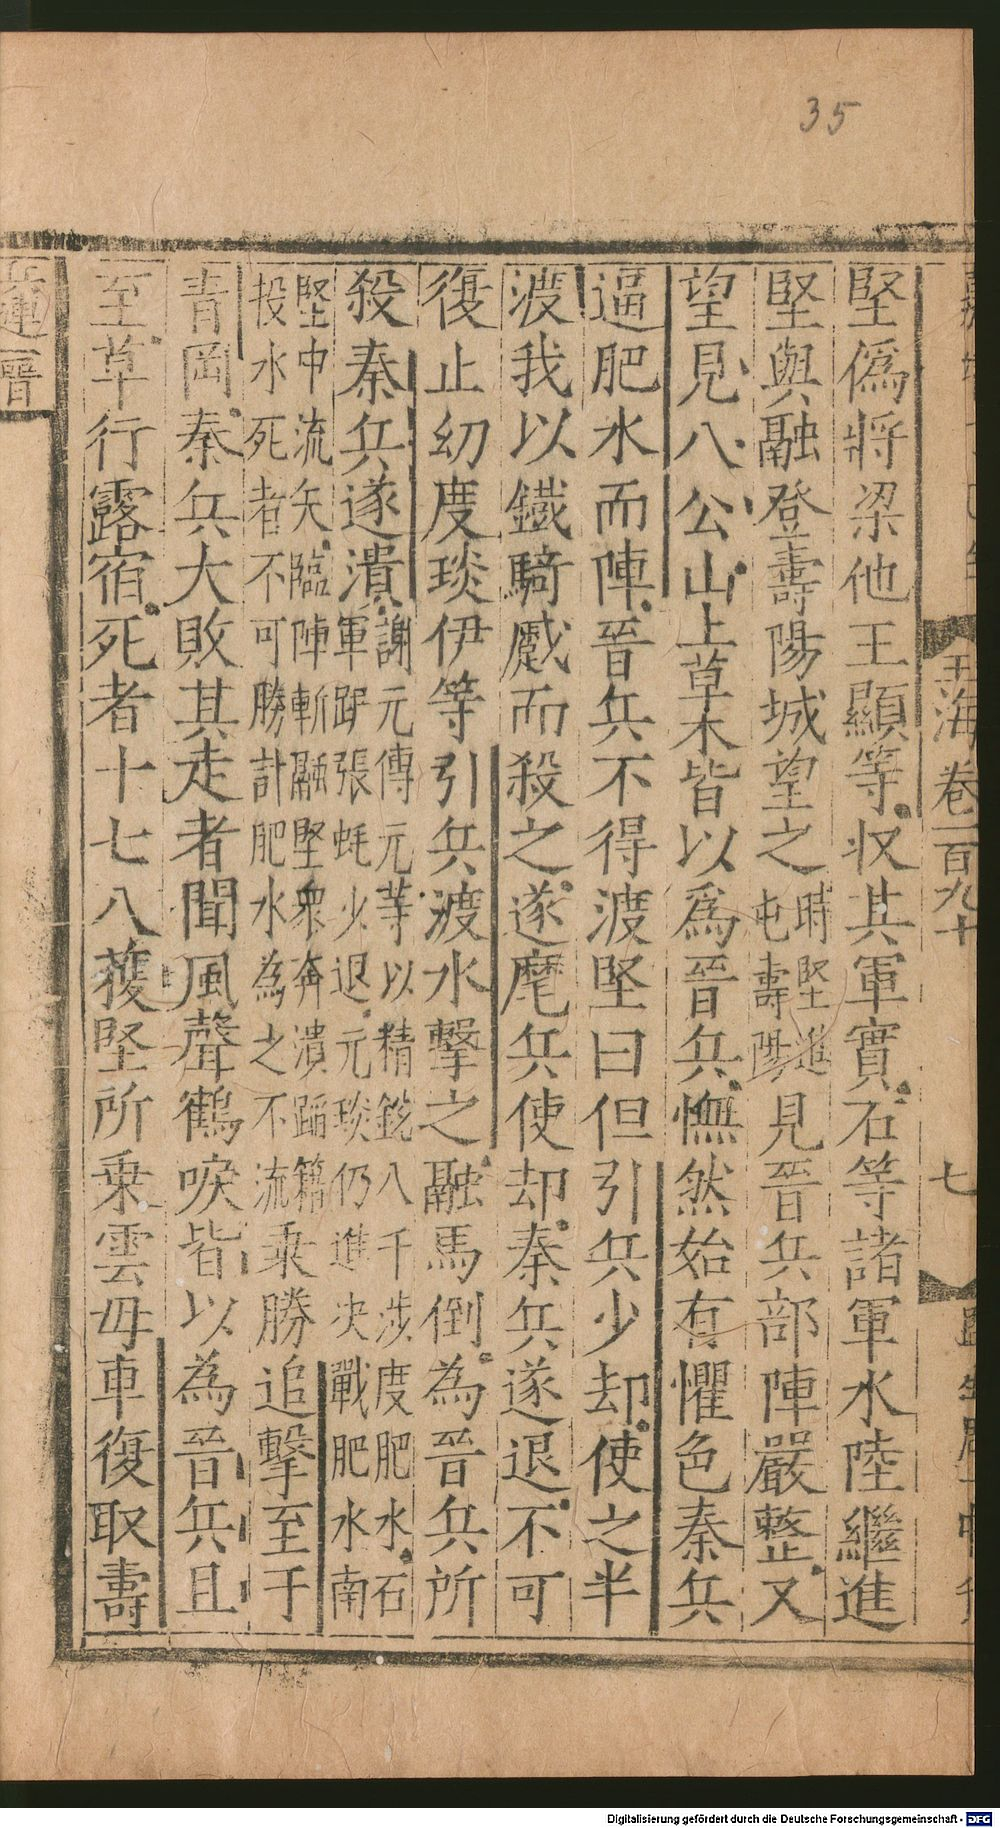 35
玉海 卷一百九十
七
堅僞將梁他王顯等収其軍實石等諸軍水陸繼進
堅與融登壽陽城望之時堅進屯壽陽見晉兵部陣嚴整又
望見八公山上草木皆以爲晉兵憮然始有懼色秦兵
逼肥水而陣晉兵不得渡堅曰但引兵少却使之半
渡我以鐵騎蹙而殺之遂麾兵使却秦兵遂退不可
復止幼度琰伊等引兵渡水擊之融馬倒為晉兵所
殺秦兵遂潰謝元傳元等以精銳八千涉度肥水石軍距張蚝少退元琰仍進决戰肥水南
堅中流矢臨陣斬融堅衆奔潰蹈籍投水死者不可勝計肥水為之不流乘勝追擊至于
青岡秦兵大敗其走者聞風聲鶴唳皆以為晉兵且
至草行露宿死者十七八獲堅所乗雲母車復取壽
兵連晉
Digitalisierung gefördert durch die Deutsche Forschungsgemeinschaft - DFG